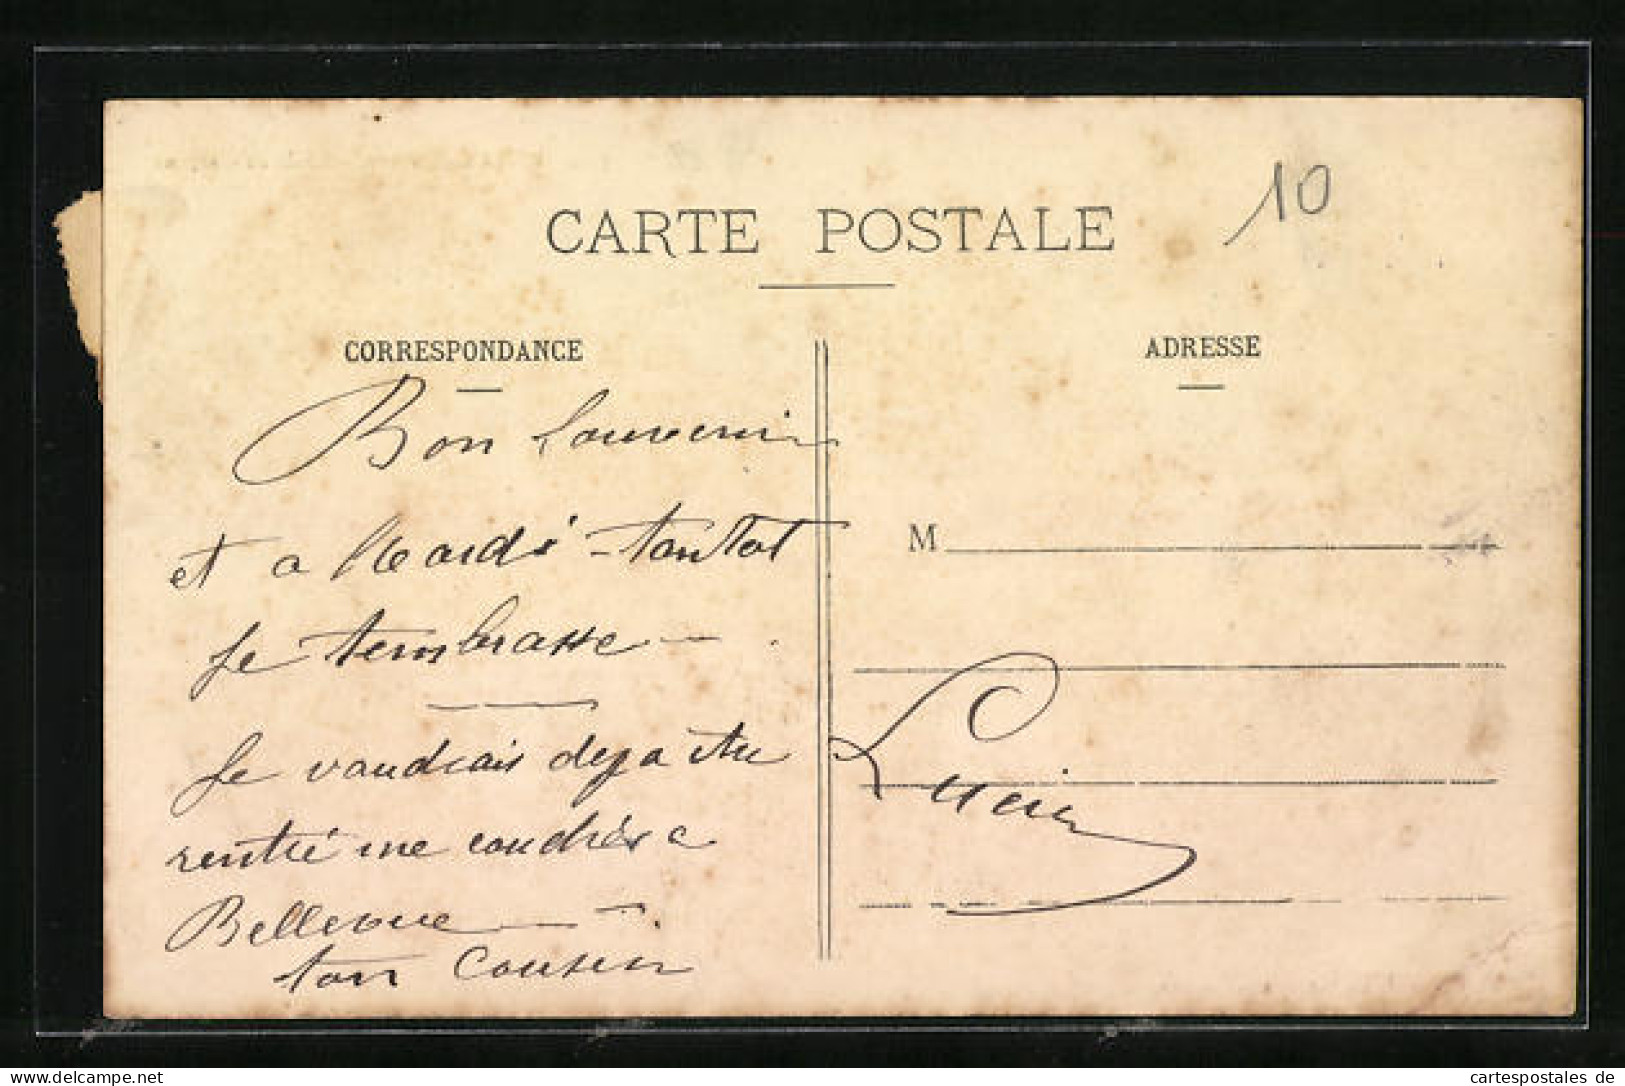 CARTE POSTALE
10
CORRESPONDANCE
Bon Souvenir
et a Mardi tantot
Je tembrasse
Je vaudrais deja etre
rentré me coudrés a
Bellevue
ton Cousin
ADRESSE
M
Lucien
delcampe.net
cartespostales de